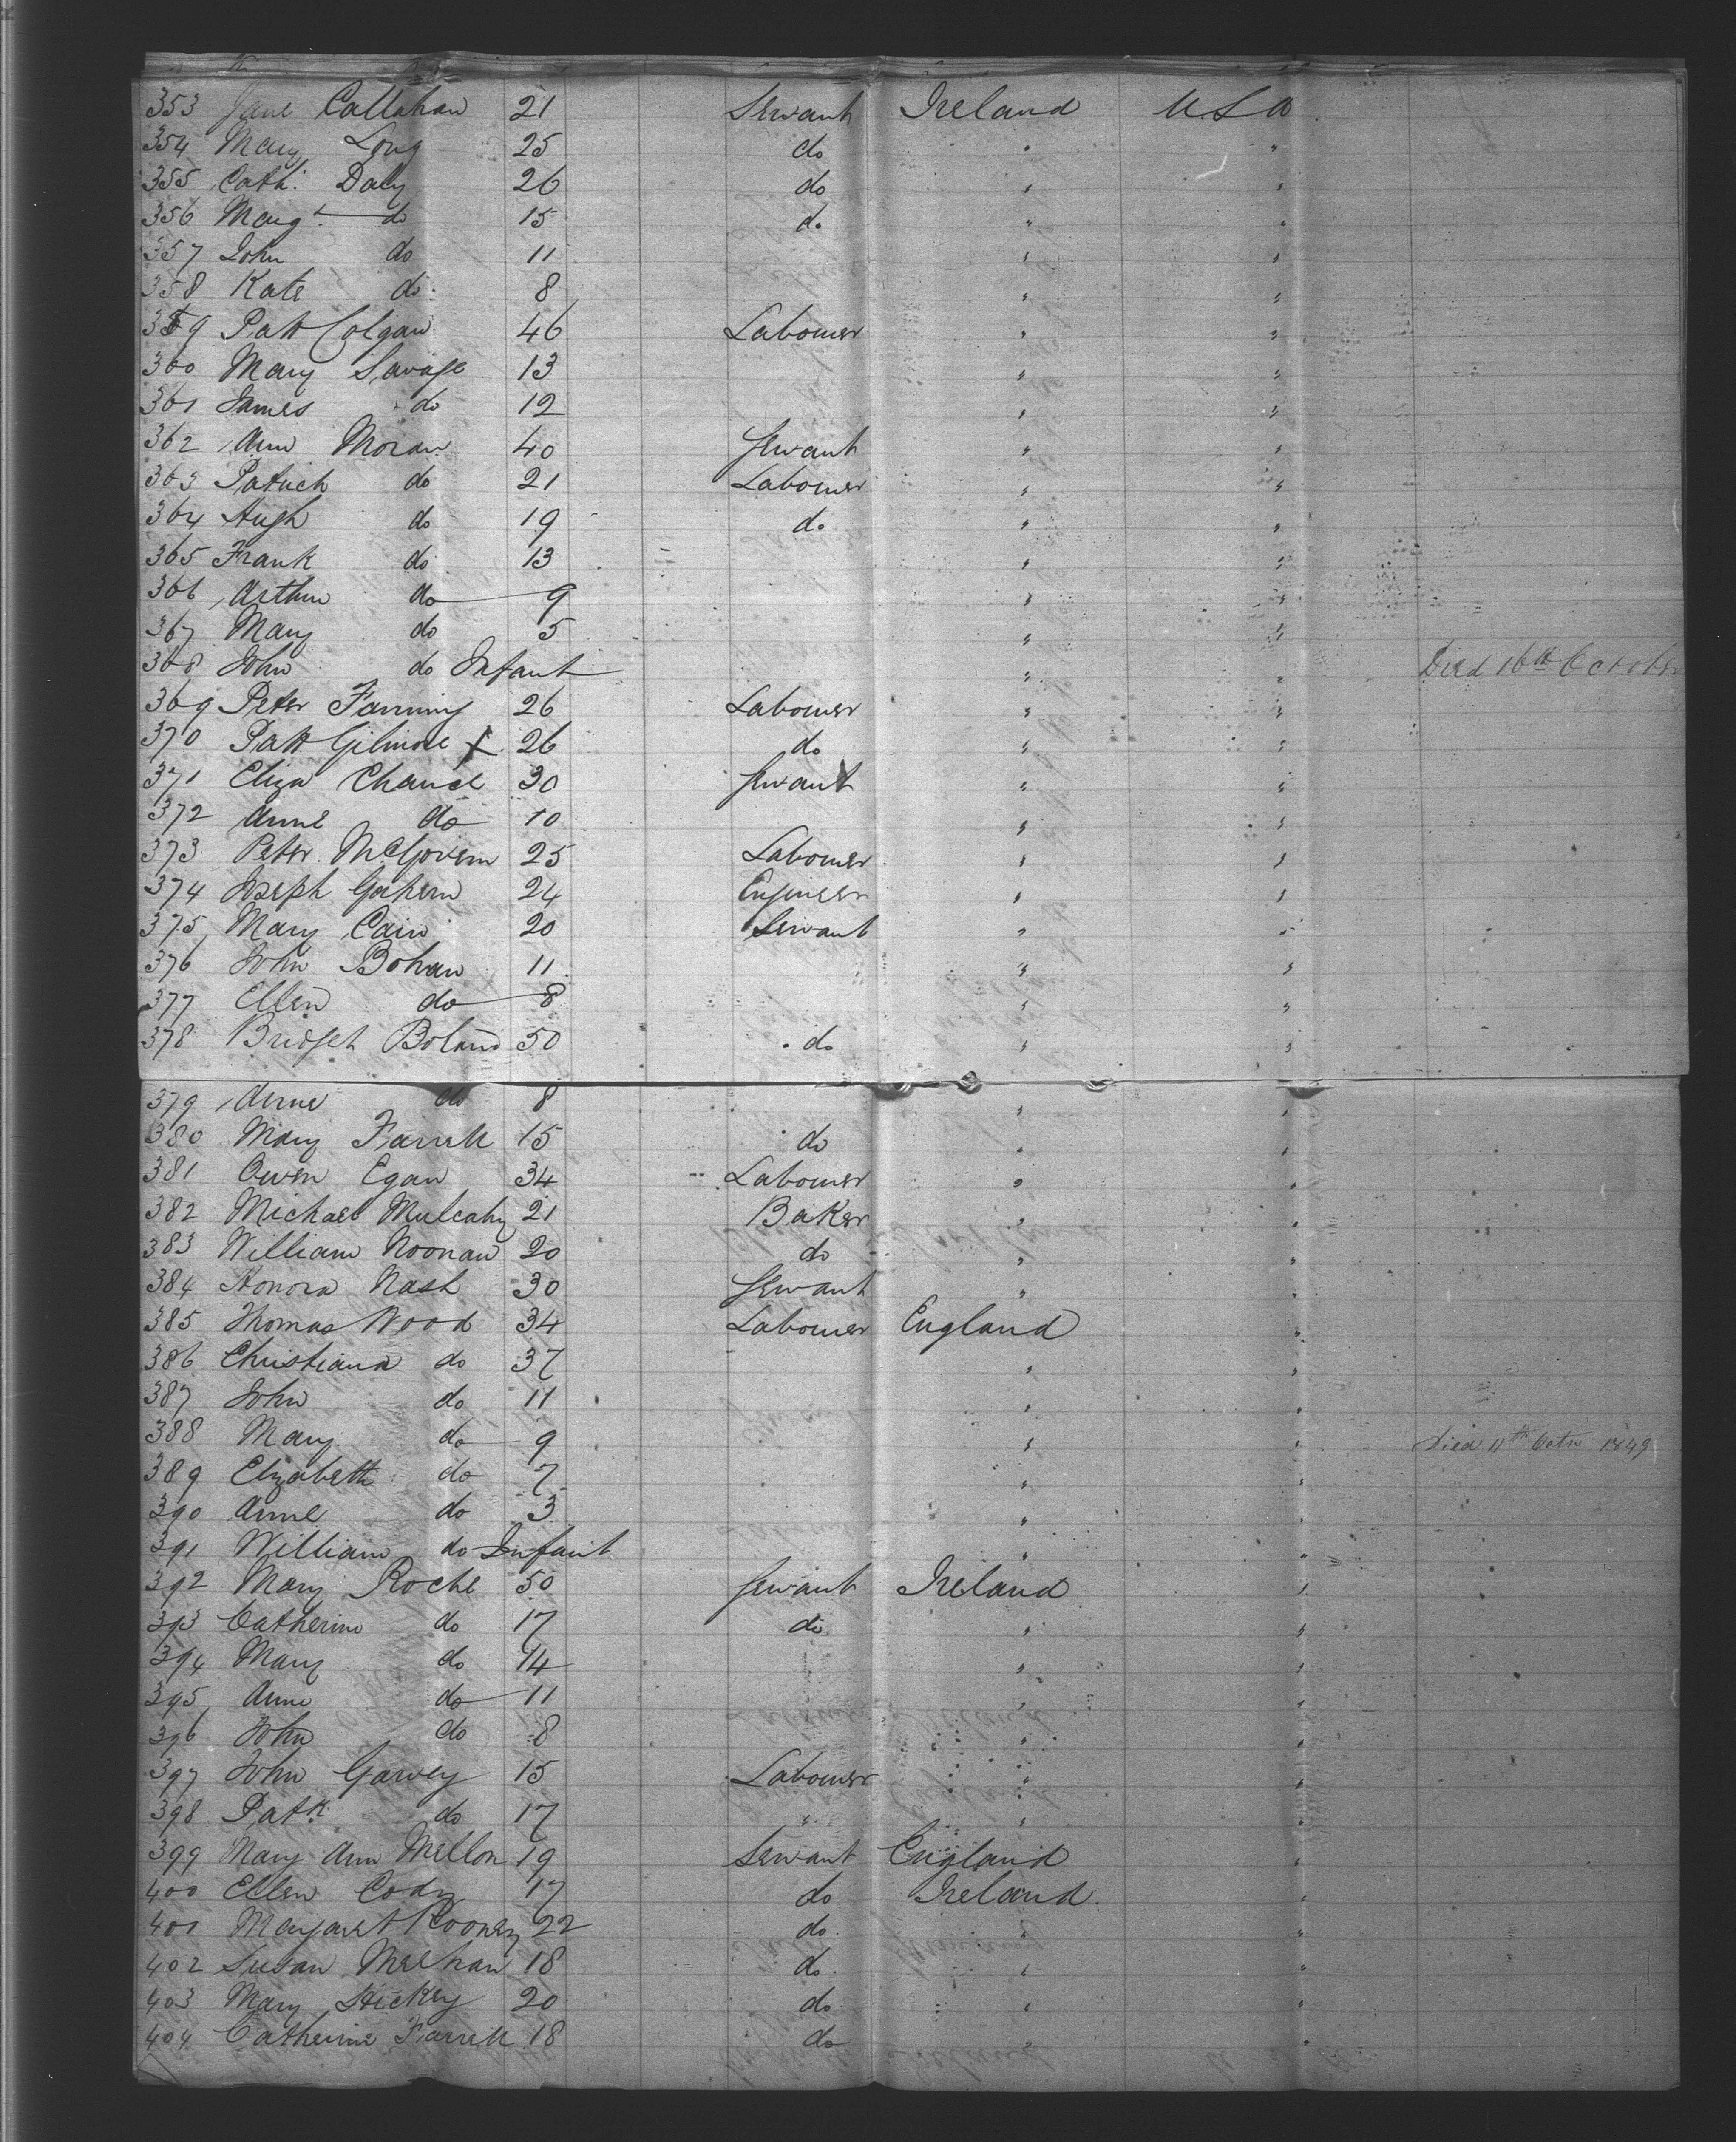 353 Jane Callahan 21 Servant Ireland U.S.A
354 Mary Long 25 do " "
355 Cath. Daly 26 do " "
356 Margt. do 15 do " "
357 John do 11 " "
358 Kate do 8 " "
359 Patt Colgan 46 Labourer " "
360 Mary Savage 13 " "
361 James do 12 " "
362 Ann Moran 40 Servant " "
363 Patrick do 21 Labourer " "
364 Hugh do 19 do " "
365 Frank do 13 " "
366 Arthur do 9 " "
367 Mary do 5 " "
368 John do Infant " " Died 16th October
369 Peter Fanning 26 Labourer " "
370 Patt Gilmore X 26 do " "
371 Eliza Chance 30 Servant " "
372 Anne do 10 " "
373 Peter McGovern 25 Labourer " "
374 Joseph 24 Engineer " "
375 Mary Cain 20 Servant " "
376 John Bohan 11 " "
377 Ellen do 8 " "
378 Bridget Boland 50 do " "
379 Anne do 8 " "
380 Mary Farrell 15 do " "
381 Owen Egan 34 Labourer " "
382 Michael Mulcahy 21 Baker " "
383 William Noonan 20 do " "
384 Honora Nash 30 Servant " "
385 Thomas Wood 34 Labourer England "
386 Christiana do 37 " "
387 John do 11 " "
388 Mary do 9 " " Died 11th Octr 1849
389 Elizabeth do 7 " "
390 Anne do 3 " "
391 William do Infant " "
392 Mary Roche 50 Servant Ireland "
393 Catherine do 17 do " "
394 Mary do 14 " "
395 Anne do 11 " "
396 John do 8 " "
397 John Garvey 15 Labourer " "
398 Patk. do 17 " " "
399 Mary Ann Mellon 19 Servant England "
400 Ellen Cody 17 do Ireland "
401 Margaret Rooney 22 do " "
402 Susan Meehan 18 do " "
403 Mary Hickey 20 do " "
404 Catherine Farrell 18 do " "